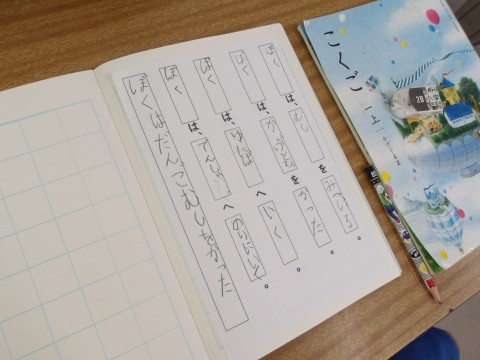 ぼくは、むしをみつける。
ぼくは、をかった。
ぼくは、へいく。
ぼくは、でんしゃへのりにいく。
ぼくはだんごむしをかった
こくご
一上
かざぐるま